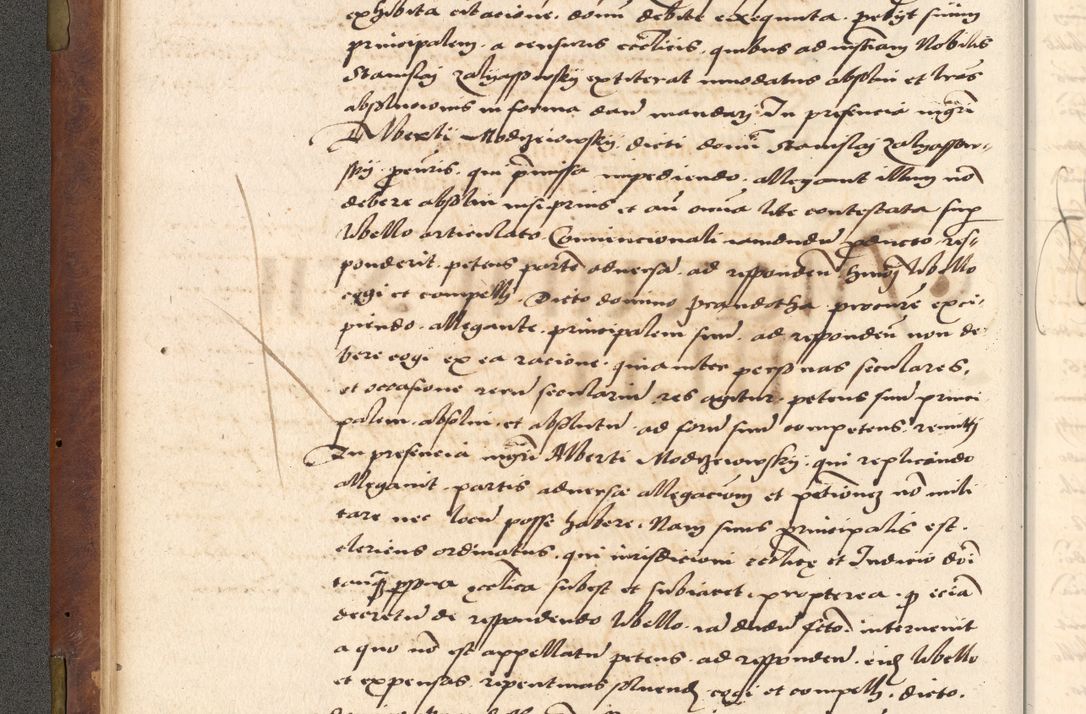 exhibita citacione, domi debite exequuta, petyt suum
principalem a censuris ecclicis, quibus ad instam Nobilis
Stanislaj Zalyassowskÿ extiterat innodatus absolui et lras
absolucionis in forma dari mandarj. In presencia mgri
Alberti Modrzeiowskÿ, dicti domi Stanislaj Zalyassow-
skÿ procuris, qui pmissa impediendo, allegauit illum no
debere absolui nisi prius et an oia lite contestata sup
libello articulato Conuencionali iamdudu producto res-
ponderit, petens parte aduersa, ad respondenu hmoj libello
cogi et compellj. Dicto domino Prandotha procure exci-
piendo, allegante, principalem suu, ad respondenu non de
bere cogi ex ea racione, quia inter personas seculares,
et occasione reru seculariu res agitur, petens suu princi
palem, absolui, et absolutu, ad foru suu competens, remittj
In presencia mgri Alberti Modrzeiowskÿ, qui replicando
allegauit, partis aduerse allegaciom et petitionez no mili
tare nec locu posse habere. Nam suus principalis est
clericus ordinatus, qui iurisdicioni ecclice et Iudicio dni
tanq psona ecclica subest et subiacet, propterea, q ecia
decretu de respondendo libello, ia dudu fcto, interuenit
a quo no est appellatu petens, ad respondenu, eidz libello
et expensas, repentinas soluendz cogi et compellj, dicto,